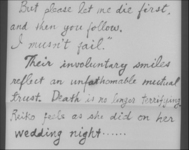 "But please let me die first,
and then you follow.
I musn't fail."
Their involuntary smiles
reflect an unfathomable mutual
trust. Death is no longer terrifying.
Reiko feels as she did on her
wedding night......